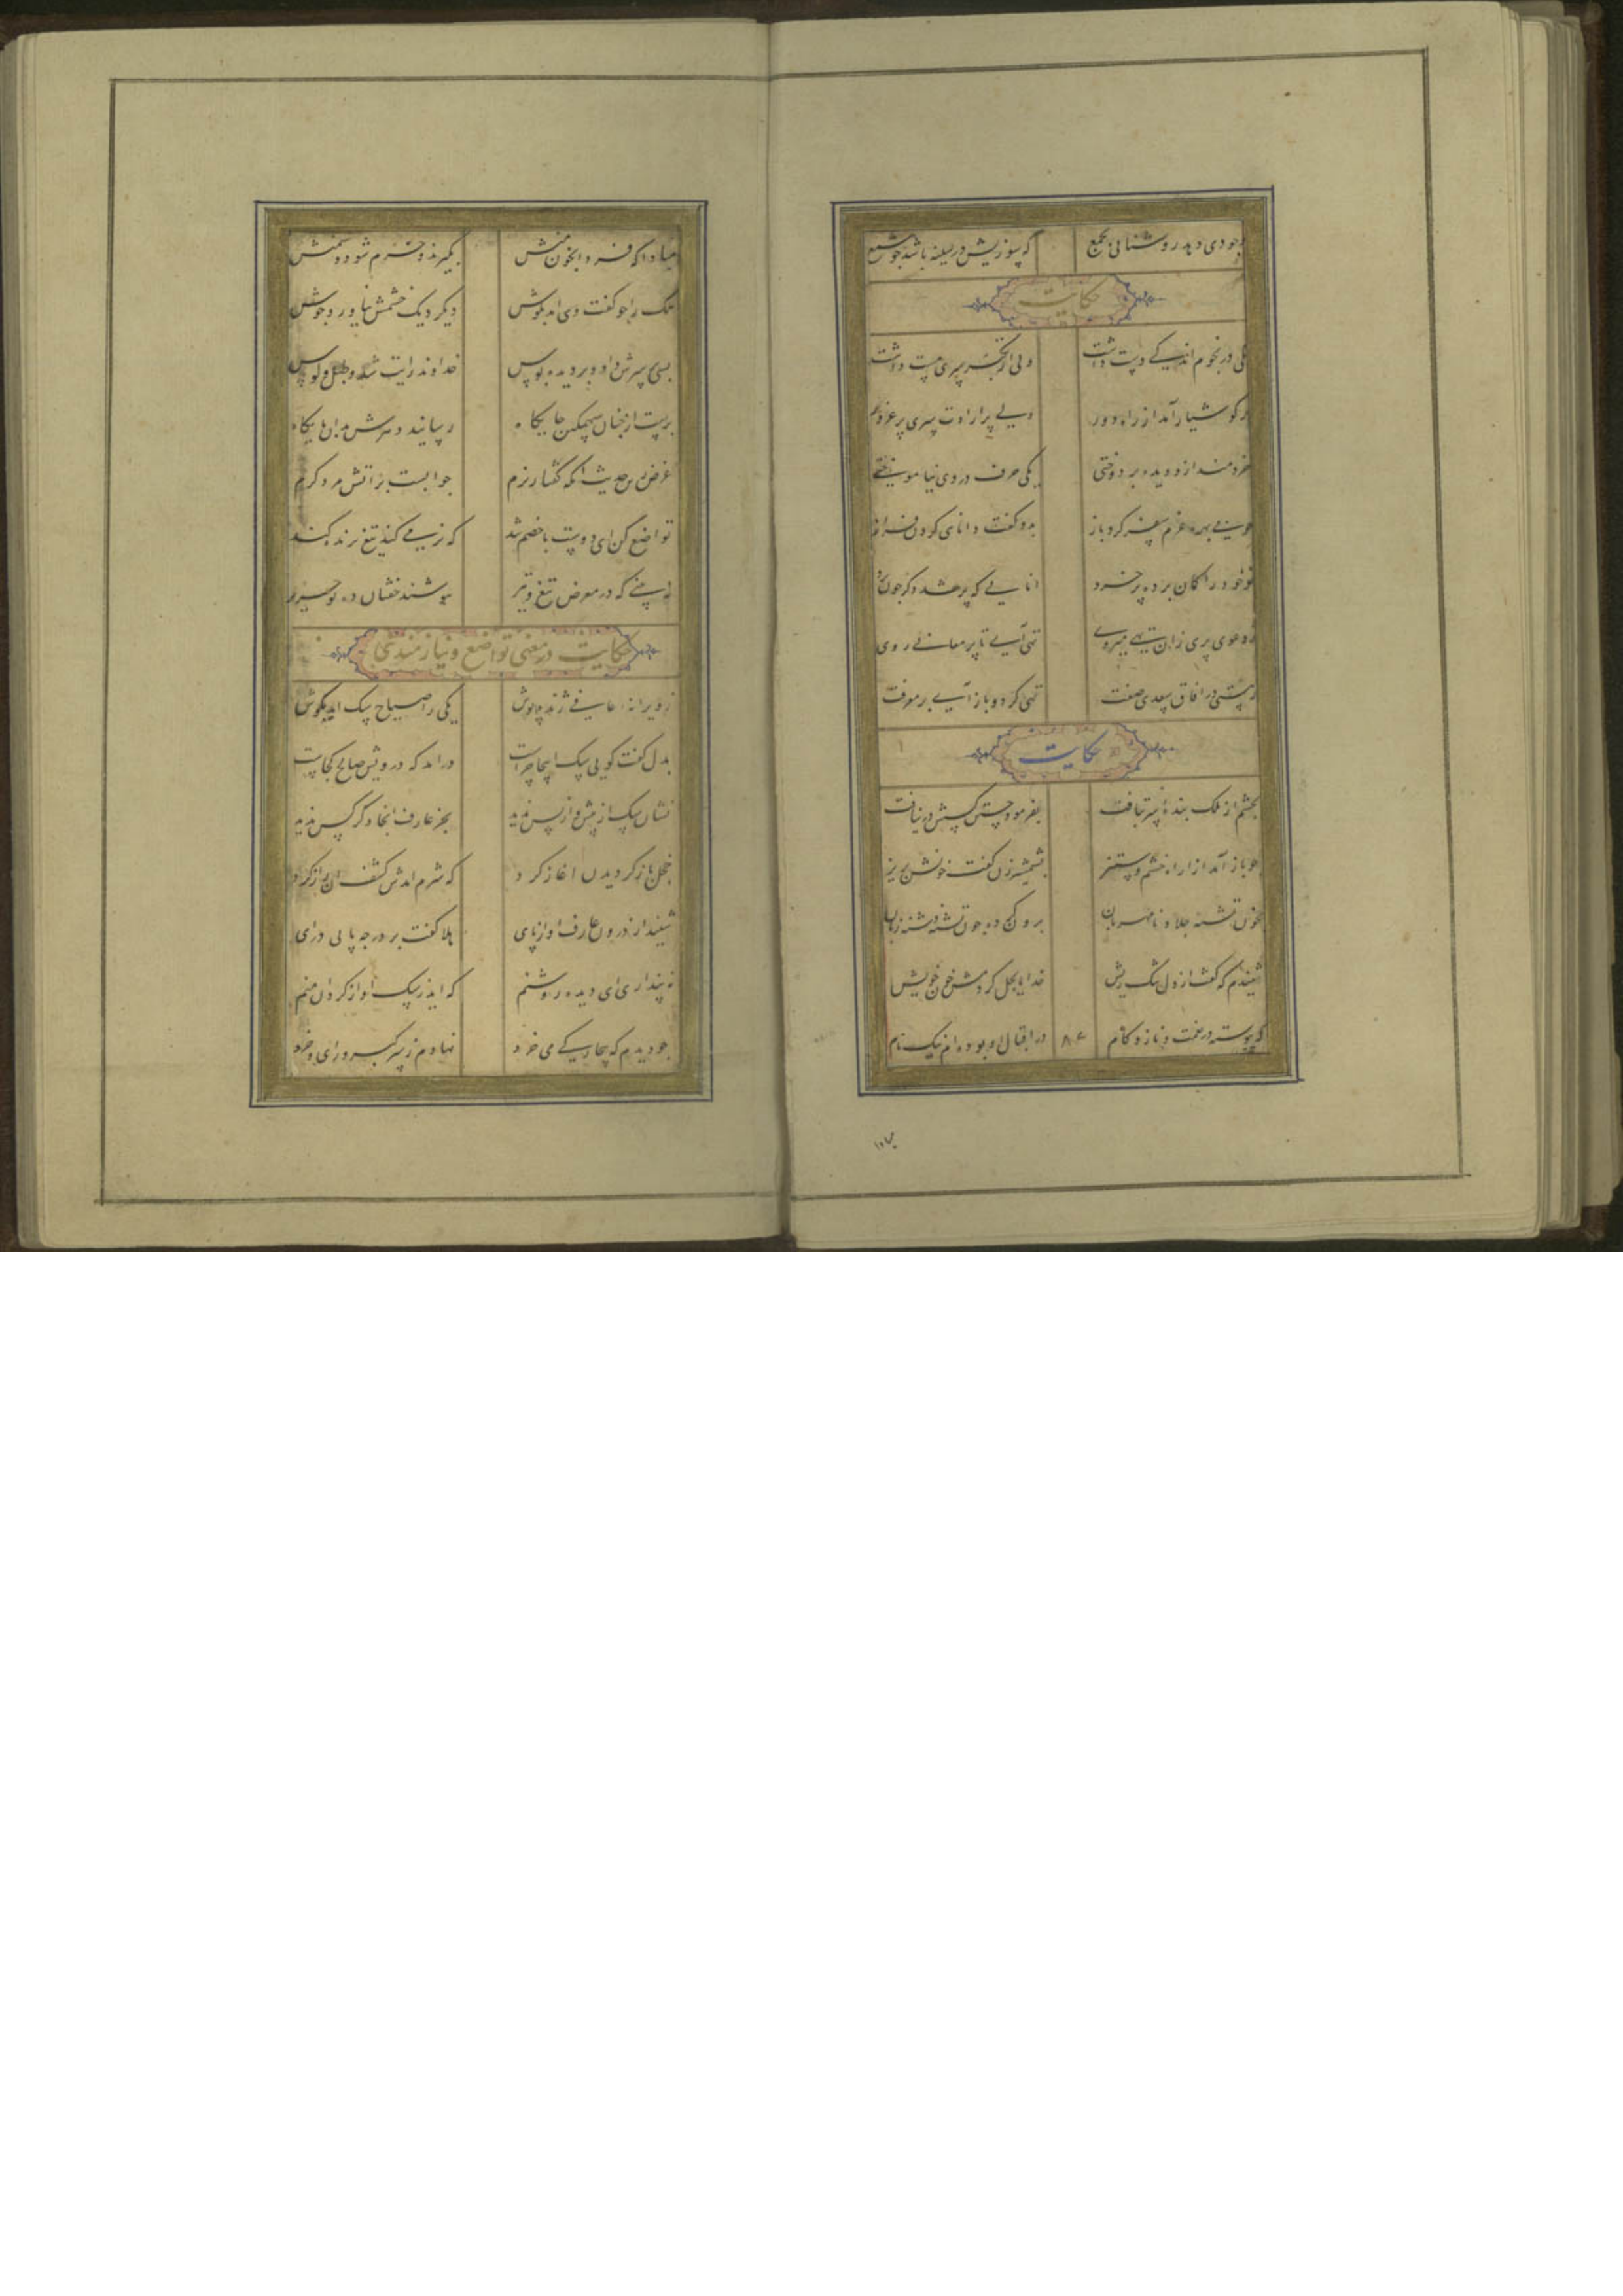 وجودی دهد روشنایی بجمع که سوزیش در سینه باشد چو شمع
حکایت
یکی در نجوم اندکی دست داشت ولی از تکبر سری مست داشت
بر کوشیار آمد از راه دور دلی پر ارادت سری پر غرور
خردمند ازو دیده بر دوختی یکی حرف در وی نیاموختی
چو بی بهره عزم سفر کرد باز بدو گفت دانای گردن فراز
تو خود را گمان برده پر خرد انایی که پر شد دگر چون برد
ز دعوی پری زان تهی میروی تهی آیی تا پر معانی روی
ز هستی در افاق سعدی صفت تهی گرد و باز آیی پر معرفت
حکایت
بخشم از ملک بنده سر بتافت بفرمود جستن کسش در نیافت
چو باز آمد از راه خشم و ستیز بشمشیر زن گفت خونش بریز
بخون تشنه جلاد نامهربان برون کرد دشنه چو تشنه زبان
شنیدم که گفت از دل تنگ ریش خدایا بحل کردمش خون خویش
که پیوسته در نعمت و ناز و کام در اقبال او بوده ام نیک نام
مبادا
مبادا که فردا بخون منش بگیرند و خرم شود دشمنش
ملک را چو گفت وی امد بگوش دگر دیک خشمش نیاورد جوش
بسی بر سرش داد و بر دیده بوس خداوند رایت شد و طبل و کوس
برفق از چنان سهمگن جایگاه رسانید دهرش بدان پایگاه
غرض زین حدیث انکه گفتار نرم چو آبست بر اتش مرد گرم
تواضع کن ای دوست با خصم تند که نرمی کند تیغ برنده کند
نه بینی که در معرض تیغ و تیر بپوشند خفتان صد تو حریر
حکایت در معنی تواضع و نیازمندی
ز ویرانه عارفی ژنده پوش یکی را صباح سگ امد بگوش
بدل گفت گویی سگ اینجا چراست درامد که درویش صالح کجاست
نشان سگ از پیش و از پس ندید بجز عارف انجا دگر کس ندید
خجل باز گردیدن اغاز کرد که شرم امدش کشف ان راز کرد
شنید از درون عارف اواز پای هلا گفت بر در چه پایی درای
نه پنداری ای دیده روشنم که ایدر سگ اواز کرد ان منم
چو دیدم که بیچارگی می خرد نهادم ز سر کبر و رای و خرد